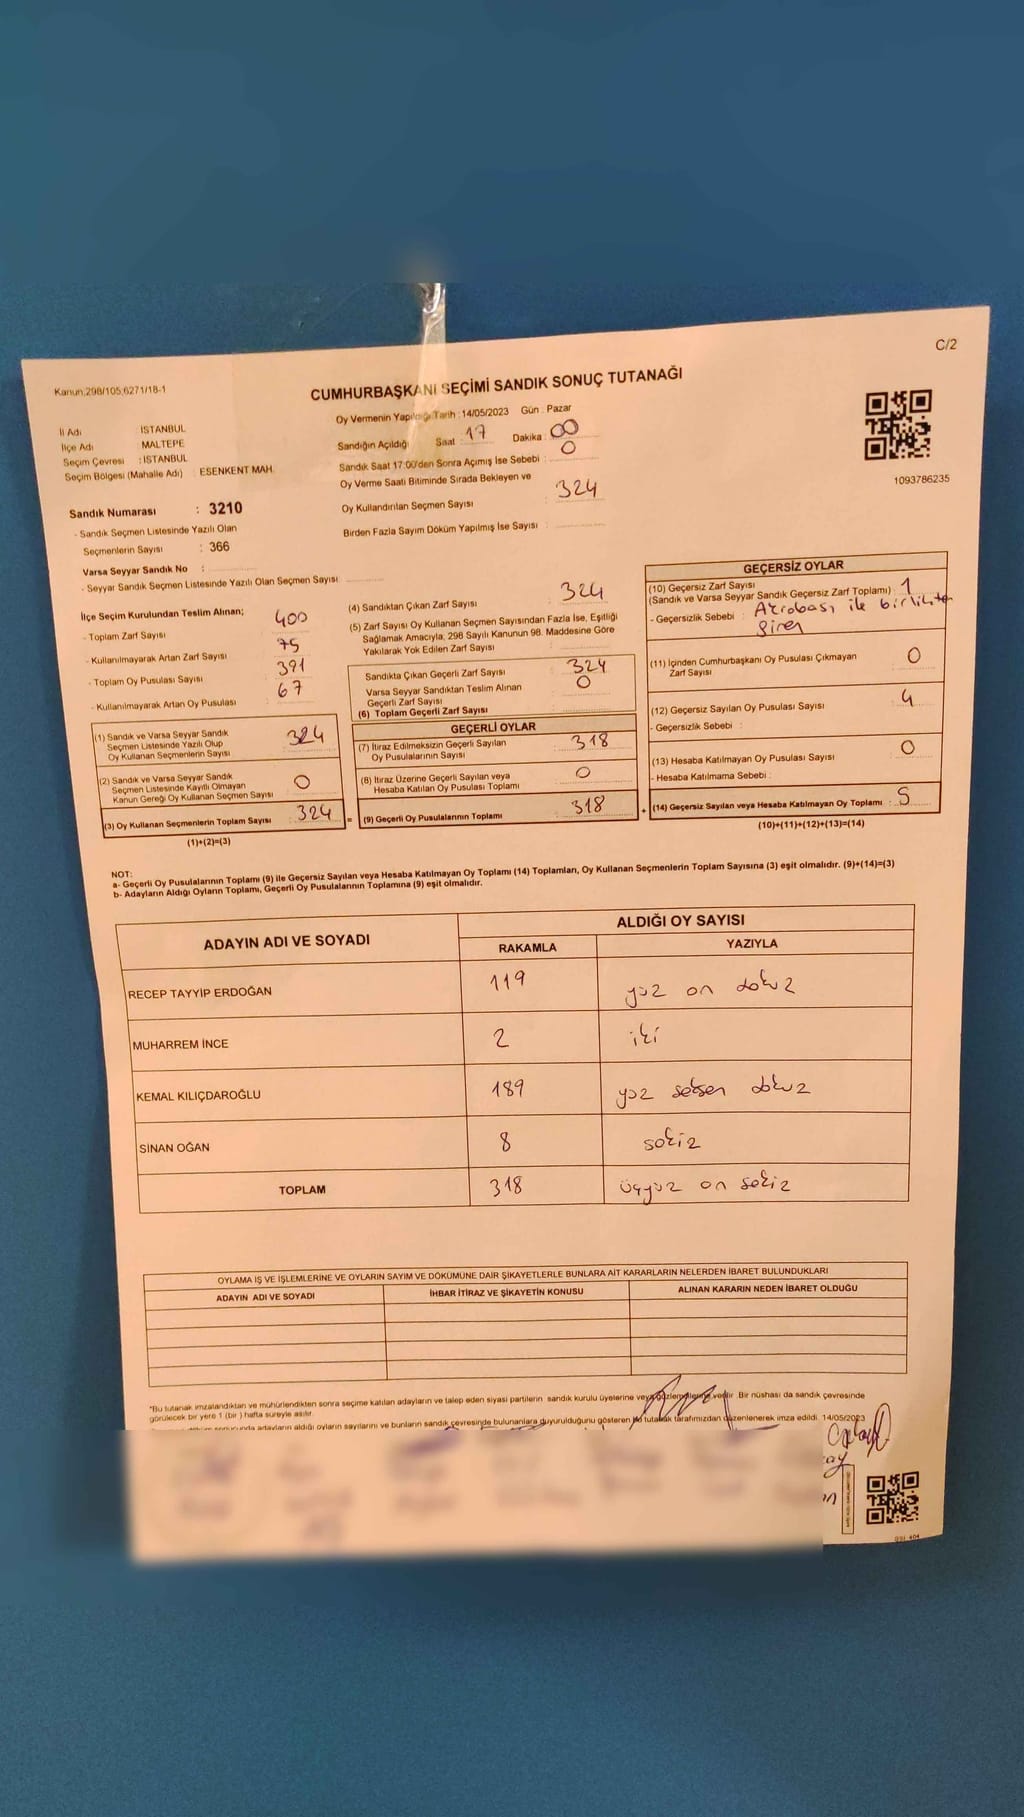 C/2
Kanun;298/105;6271/18-1
CUMHURBAŞKANI SEÇİMİ SANDIK SONUÇ TUTANAĞI
Oy Vermenin Yapıldığı Tarih : 14/05/2023 Gün : Pazar
İl Adı : İSTANBUL
İlçe Adı : MALTEPE
Seçim Çevresi : İSTANBUL
Seçim Bölgesi (Mahalle Adı) : ESENKENT MAH.
Sandığın Açıldığı Saat : 17 Dakika : 00
Sandık Saat 17:00'den Sonra Açımış İse Sebebi :
0
Oy Verme Saati Bitiminde Sırada Bekleyen ve
Oy Kullandırılan Seçmen Sayısı : 324
Birden Fazla Sayım Döküm Yapılmış İse Sayısı :
1093786235
Sandık Numarası : 3210
- Sandık Seçmen Listesinde Yazılı Olan
Seçmenlerin Sayısı : 366
Varsa Seyyar Sandık No :
- Seyyar Sandık Seçmen Listesinde Yazılı Olan Seçmen Sayısı
İlçe Seçim Kurulundan Teslim Alınan;
- Toplam Zarf Sayısı : 400
- Kullanılmayarak Artan Zarf Sayısı : 75
- Toplam Oy Pusulası Sayısı : 391
- Kullanılmayarak Artan Oy Pusulası : 67
(1) Sandık ve Varsa Seyyar Sandık
Seçmen Listesinde Yazılı Olup
Oy Kullanan Seçmenlerin Sayısı : 324
(2) Sandık ve Varsa Seyyar Sandık
Seçmen Listesinde Kayıtlı Olmayan
Kanun Gereği Oy Kullanan Seçmen Sayısı : 0
(3) Oy Kullanan Seçmenlerin Toplam Sayısı : 324 =
(1)+(2)=(3)
(4) Sandıktan Çıkan Zarf Sayısı : 324
(5) Zarf Sayısı Oy Kullanan Seçmen Sayısından Fazla İse, Eşitliği
Sağlamak Amacıyla, 298 Sayılı Kanunun 98. Maddesine Göre
Yakılarak Yok Edilen Zarf Sayısı :
Sandıkta Çıkan Geçerli Zarf Sayısı : 324
Varsa Seyyar Sandıktan Teslim Alınan
Geçerli Zarf Sayısı : 0
(6) Toplam Geçerli Zarf Sayısı :
GEÇERLİ OYLAR
(7) İtiraz Edilmeksizin Geçerli Sayılan
Oy Pusulalarının Sayısı : 318
(8) İtiraz Üzerine Geçerli Sayılan veya
Hesaba Katılan Oy Pusulası Toplamı : 0
(9) Geçerli Oy Pusulalarının Toplamı : 318 +
GEÇERSİZ OYLAR
(10) Geçersiz Zarf Sayısı
(Sandık ve Varsa Seyyar Sandık Geçersiz Zarf Toplamı) : 1
- Geçersizlik Sebebi : Akrabası ile birlikte
giren
(11) İçinden Cumhurbaşkanı Oy Pusulası Çıkmayan
Zarf Sayısı : 0
(12) Geçersiz Sayılan Oy Pusulası Sayısı : 4
- Geçersizlik Sebebi :
(13) Hesaba Katılmayan Oy Pusulası Sayısı : 0
- Hesaba Katılmama Sebebi :
(14) Geçersiz Sayılan veya Hesaba Katılmayan Oy Toplamı : 5
(10)+(11)+(12)+(13)=(14)
NOT:
a- Geçerli Oy Pusulalarının Toplamı (9) ile Geçersiz Sayılan veya Hesaba Katılmayan Oy Toplamı (14) Toplamları, Oy Kullanan Seçmenlerin Toplam Sayısına (3) eşit olmalıdır. (9)+(14)=(3)
b- Adayların Aldığı Oyların Toplamı, Geçerli Oy Pusulalarının Toplamına (9) eşit olmalıdır.
ADAYIN ADI VE SOYADI
ALDIĞI OY SAYISI
RAKAMLA YAZIYLA
RECEP TAYYİP ERDOĞAN 119 yüz on dokuz
MUHARREM İNCE 2 iki
KEMAL KILIÇDAROĞLU 189 yüz seksen dokuz
SİNAN OĞAN 8 sekiz
TOPLAM 318 üçyüz on sekiz
OYLAMA İŞ VE İŞLEMLERİNE VE OYLARIN SAYIM VE DÖKÜMÜNE DAİR ŞİKAYETLERLE BUNLARA AİT KARARLARIN NELERDEN İBARET BULUNDUKLARI
ADAYIN ADI VE SOYADI İHBAR İTİRAZ VE ŞİKAYETİN KONUSU ALINAN KARARIN NEDEN İBARET OLDUĞU
*Bu tutanak imzalandıktan ve mühürlendikten sonra seçime katılan adayların ve talep eden siyasi partilerin sandık kurulu üyelerine veya gözlemcilerine verilir. Bir nüshası da sandık çevresinde
görülecek bir yere 1 (bir) hafta süreyle asılır.
sonucunda adayların aldığı oyların sayılarını ve bunların sandık çevresinde bulunanlara duyurulduğunu gösteren bu tutanak tarafımızdan düzenlenerek imza edildi. 14/05/2023